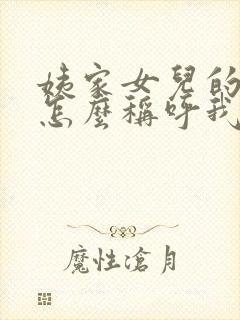 姨家女兒的
怎麼稱呼我
魔性滄月